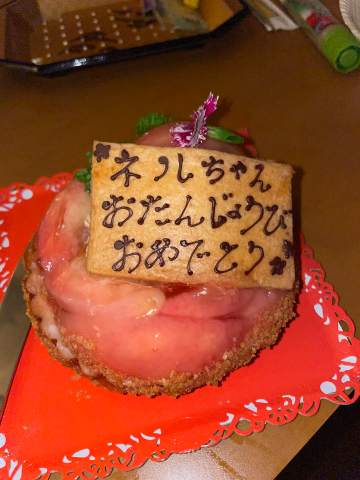 ネルちゃん
おたんじょうび
おめでとう